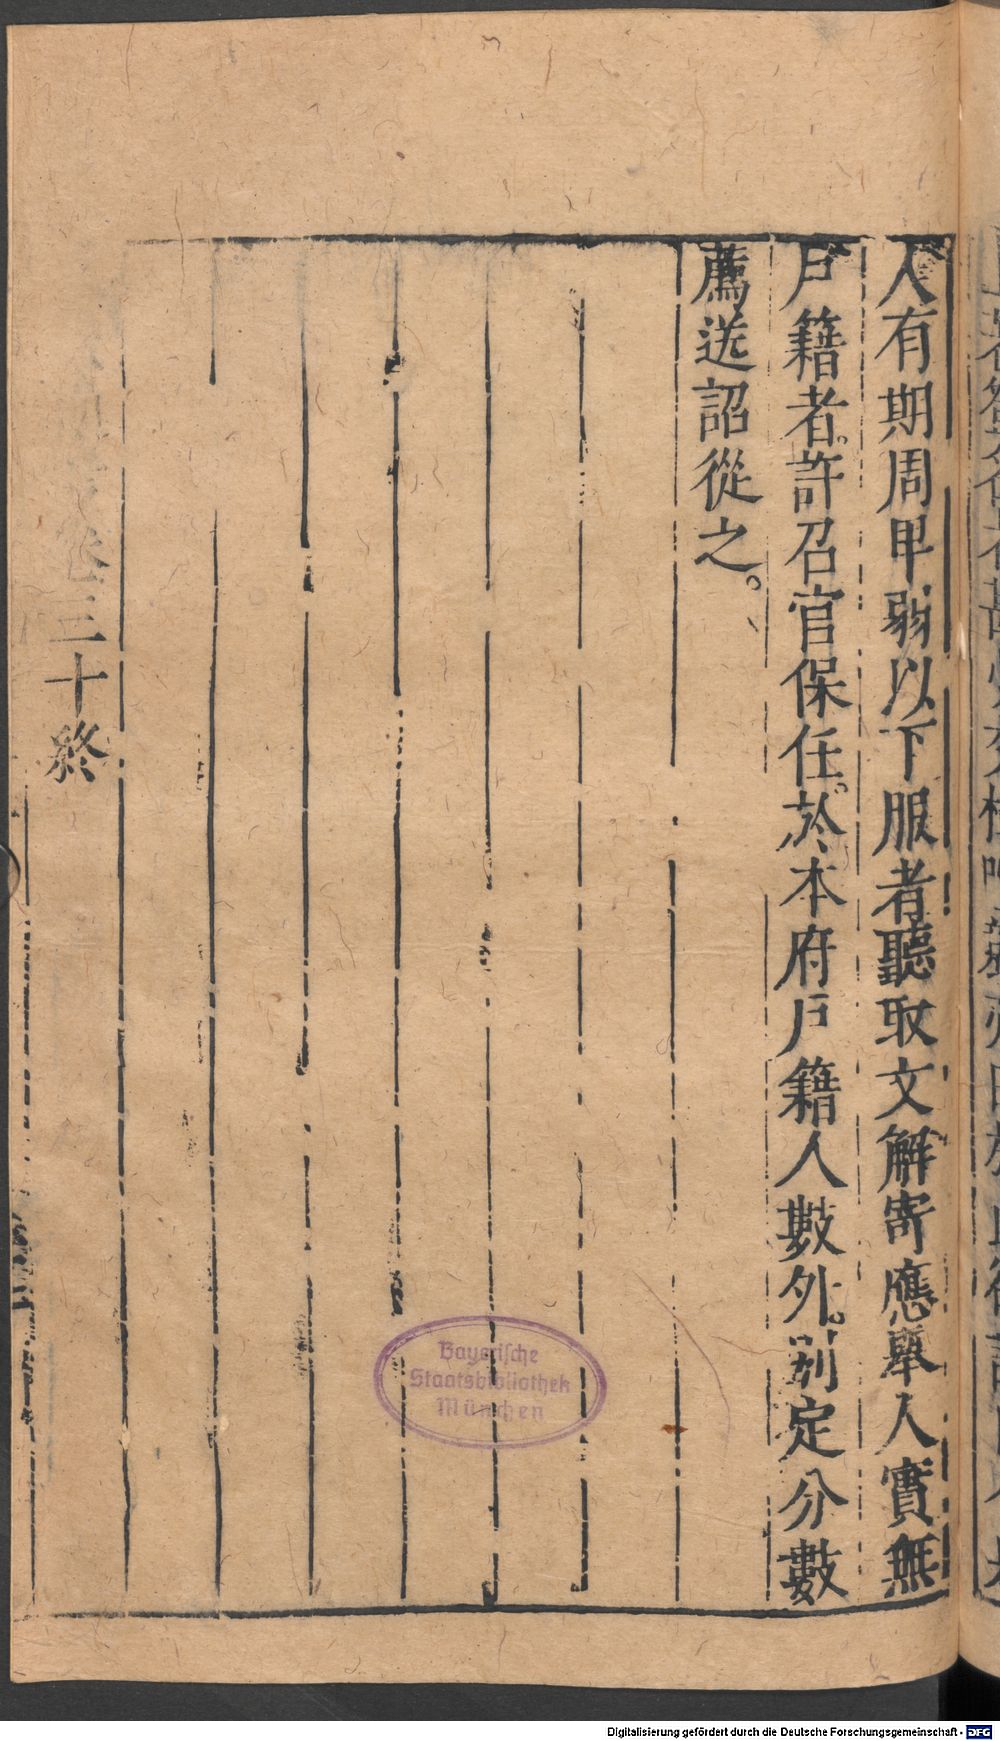 人有期周甲弱以下服者聽取文解寄應舉人實無
戶籍者許召官保任。於本府戶籍人數外。別定分數
薦送詔從之。
卷三十終
Bayerische
Staatsbibliothek
München
Digitalisierung gefördert durch die Deutsche Forschungsgemeinschaft - DFG